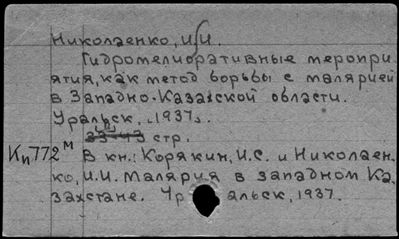 Николаенко, И.И.
Гидромелиоративные меропри
ятия, как метод борьбы с малярией
в Западно-Казахской области.
Уральск, 1937.
стр.
Кп772м В кн.: Корякин, И.С. и Николаен
ко, И.И. Малярия в западном Ка
захстане. Ур альск, 1937.